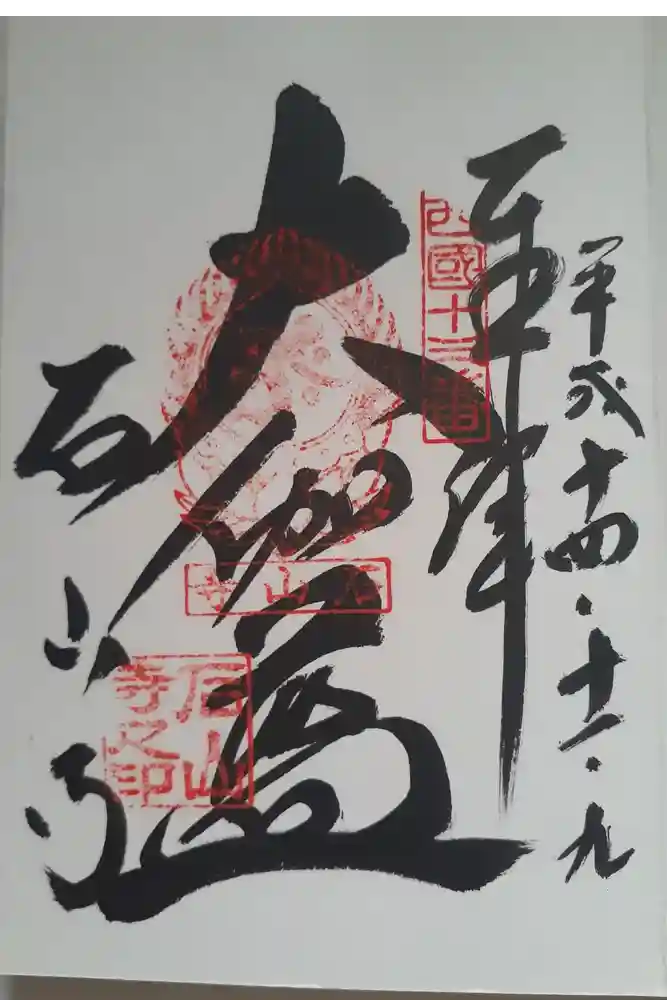 平成十四・十一・九
奉拝
西國十三番
大伽藍
石山寺
石山寺
石山寺之印